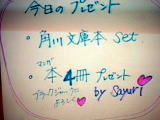 今日のプレゼント
・角川文庫本 Set
マンガ
・本4冊プレゼント
ブラックジャックに
よろしく
by Sayuri